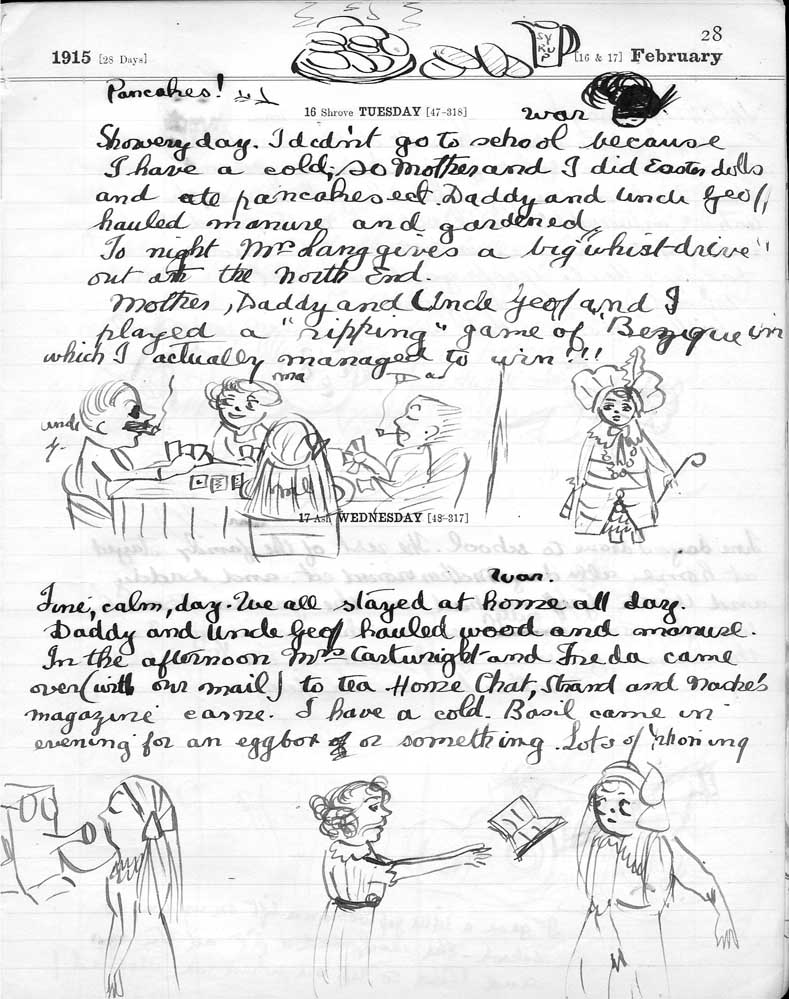 28
1915 [28 Days]
SYRUP
[16 & 17] February
Pancakes!
16 Shrove TUESDAY [47-318]
war
Showery day. I didn't go to school because
I have a cold, so Mother and I did Easter dolls
and ate pancakes ect. Daddy and Uncle Geof,
hauled manure and gardened,
To night Mrs Lang gives a big "whist-drive"
out at the North End.
Mother, Daddy and Uncle Geof and I
played a "ripping" game of Bezique in
which I actually managed to win!!!
ma
Dad
uncle
me
17 Ash WEDNESDAY [48-317]
war.
Fine, calm, day. We all stayed at home all day.
Daddy and Uncle Geof hauled wood and manure.
In the afternoon Mrs Cartwright and Freda came
over (with our mail) to tea Home Chat, Strand and Nashe's
magazine came. I have a cold. Basil came in
evening for an eggbox or something. Lots of 'phoning